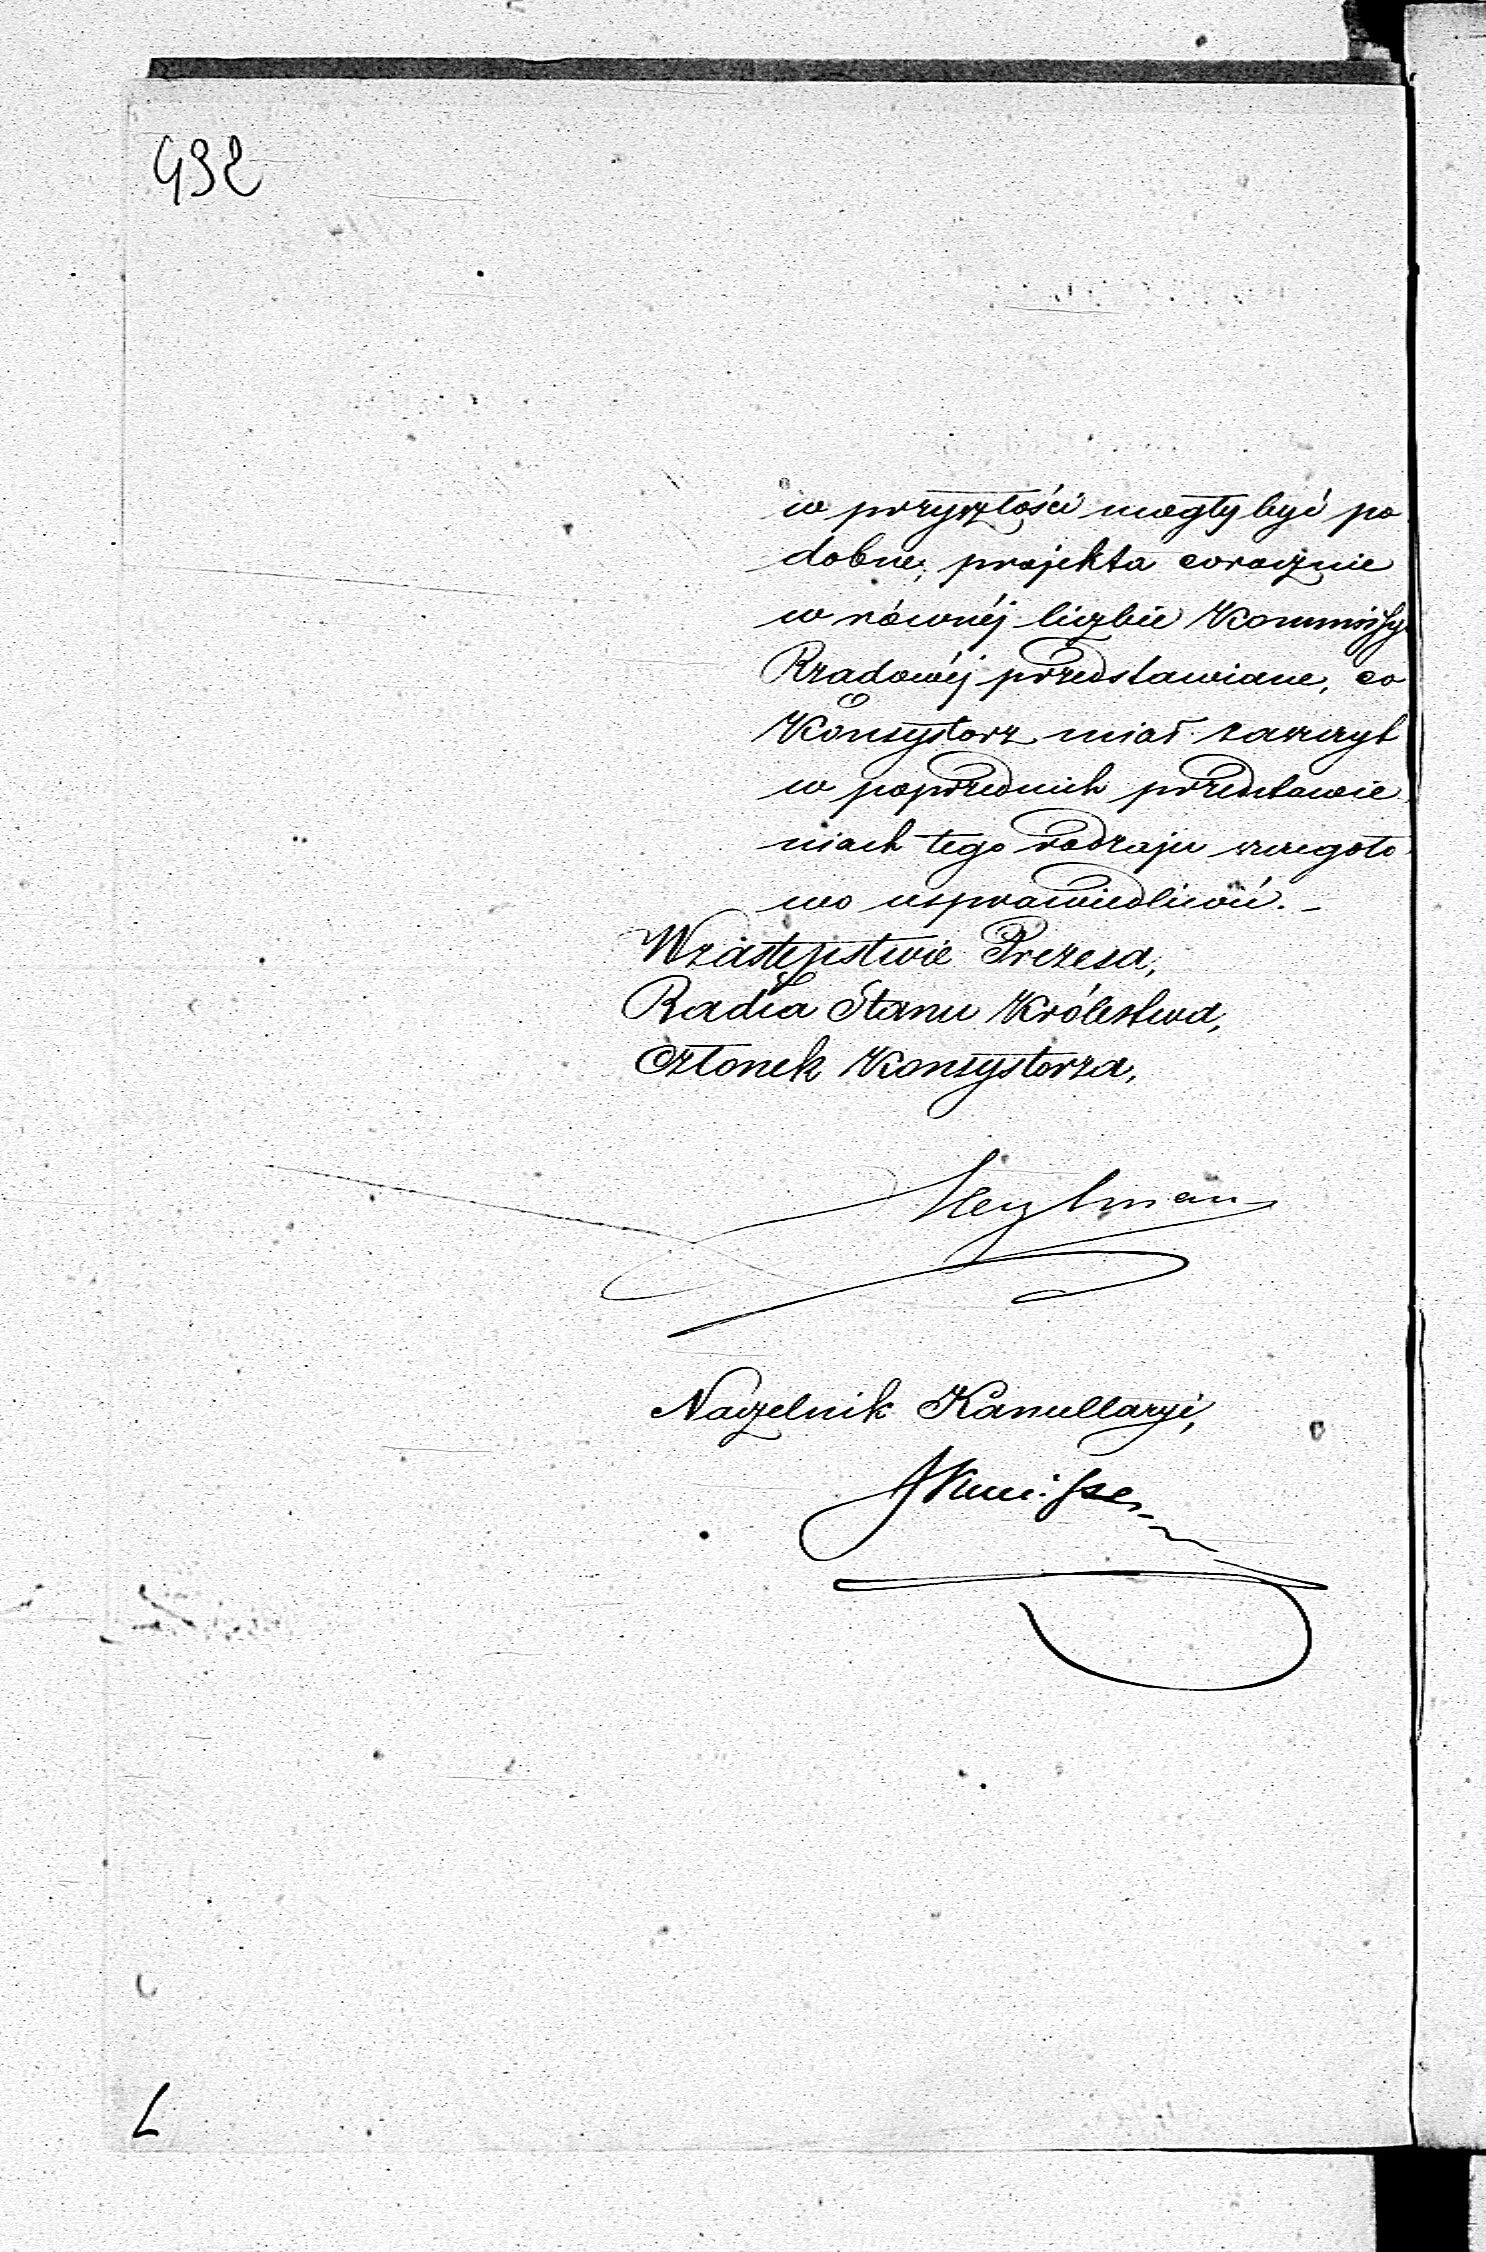 492
w przyszłości mogły być po
dobne, projekta corocznie
w równéj liczbie Kommissyi
Rządowéj przedstawiane, co
Konsystorz miał zaszczyt
w poprzednich przedstawie
niach tego rodzaju szczegóło
wo usprawiedliwić. _
W zastępstwie Prezesa,
Radca Stanu Królestwa,
Członek Konsystorza,
Heylman
Naczelnik Kancellaryi,